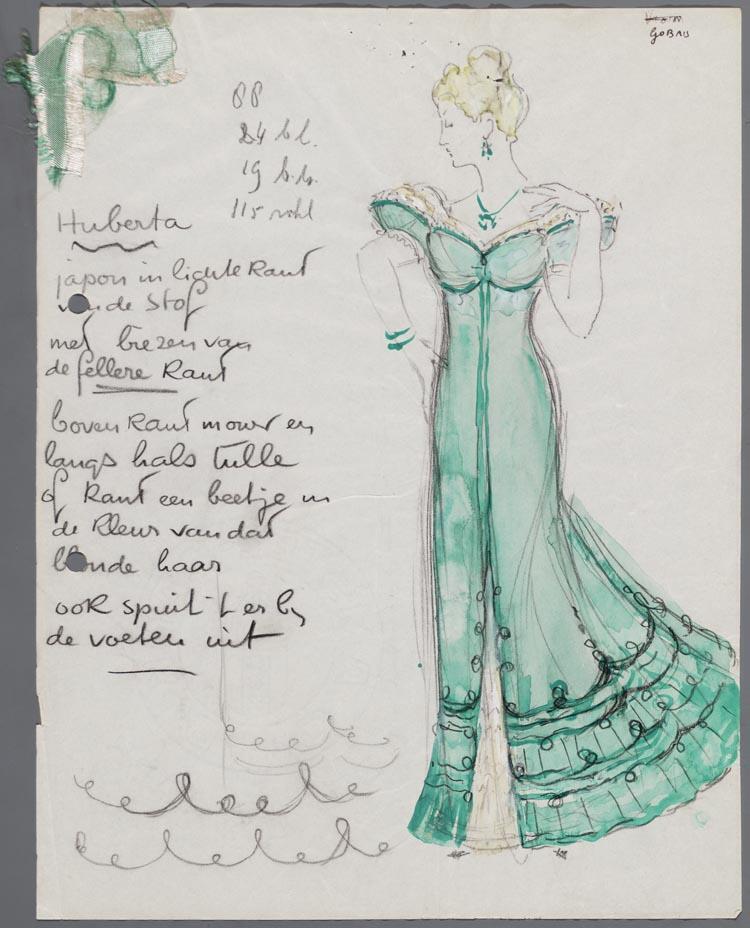 GOBAU
88
84 b.l.
19 b.b.
115 rokl
Huberta
japon in lichte kant
van de stof
met biezen van
de fellere kant
boven kant mouw en
langs hals tulle
of kant een beetje in
de kleur van dat
blonde haar
ook spuit 't er bij
de voeten uit